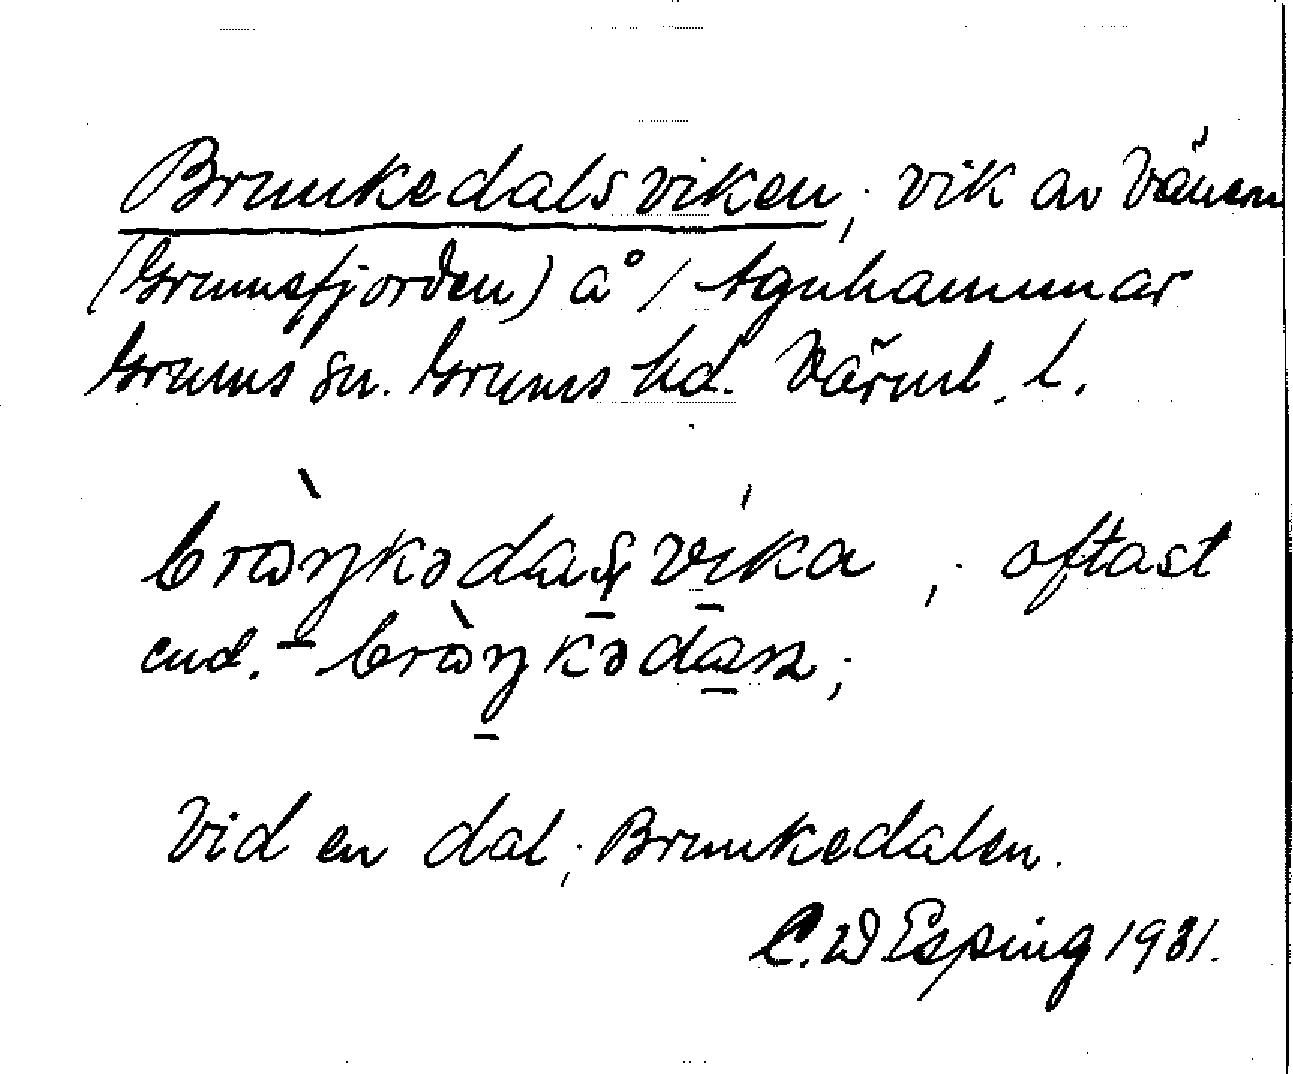 Brunkedalsviken; vik av Vänern
(Grumsfjorden) å / Agnhammar
Grums sn. Grums hd. Värml. l.
brωŋkədasvika; oftast
end. - brωŋkədan;
Vid en dal; Brunkedalen.
C. W Esping 1931.